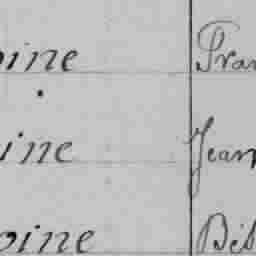 oine Fran
ine Jean
oine Bib